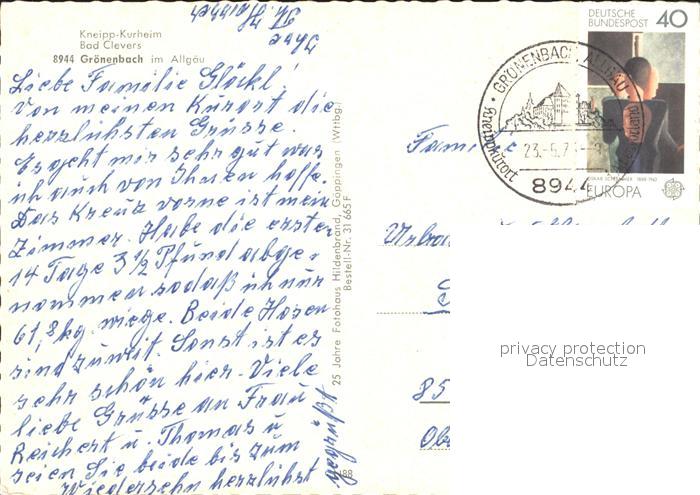 Kneipp-Kurheim
Bad Clevers
8944 Grönenbach im Allgäu
Liebe Familie Glöckl!
Von meinen Kurort die
herzlichsten Grüsse.
Es geht mir sehr gut was
ich auch von Ihnen hoffe.
Das Kreuz vorne ist mein
Zimmer. Habe die erster
14 Tage 3 1/2 Pfund abge-
nommen sodaß ich nur
61,8 kg wiege. Beide Hosen
sind zu weit. Sonst ist es
sehr schön hier. Viele
liebe Grüsse an Frau
Reichert u. Thomas u.
seien Sie beide bis zum
Wiedersehn herzlichst
gegrüßt
25 Jahre Fotohaus Hildenbrand, Göppingen (Wttbg.)
Bestell-Nr. 31 665 F
DEUTSCHE
BUNDESPOST 40
OSKAR SCHLEMMER 1888-1943
EUROPA
GRÖNENBACH, ALLGÄU
Kneippkurort
8944
Fam
Urba
85
Obe
privacy protection
Datenschutz